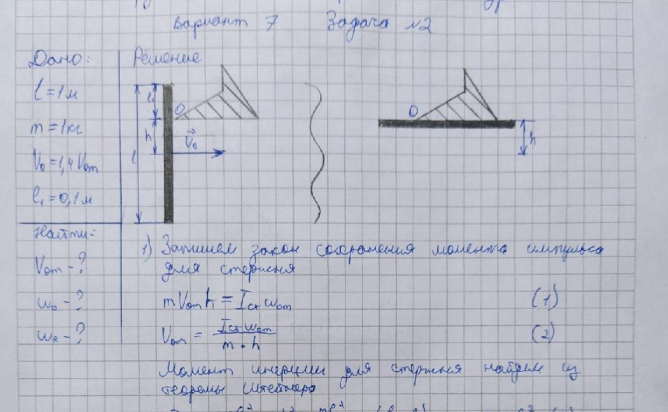 Вариант 7 Задача №2
Дано: Решение
l = 1 м
m = 1 кг
V₀ = 1,4 Vom
l₁ = 0,1 м
Найти:
Vom - ?
ω₀ - ?
l₁
h
l
O
V₀
O
h
1) Запишем закон сохранения момента импульса
для стержня
mVom h = Iст ωom (1)
Vom = Iст ωom / m · h (2)
Момент инерции для стержня найдем из
теоремы Штейнера